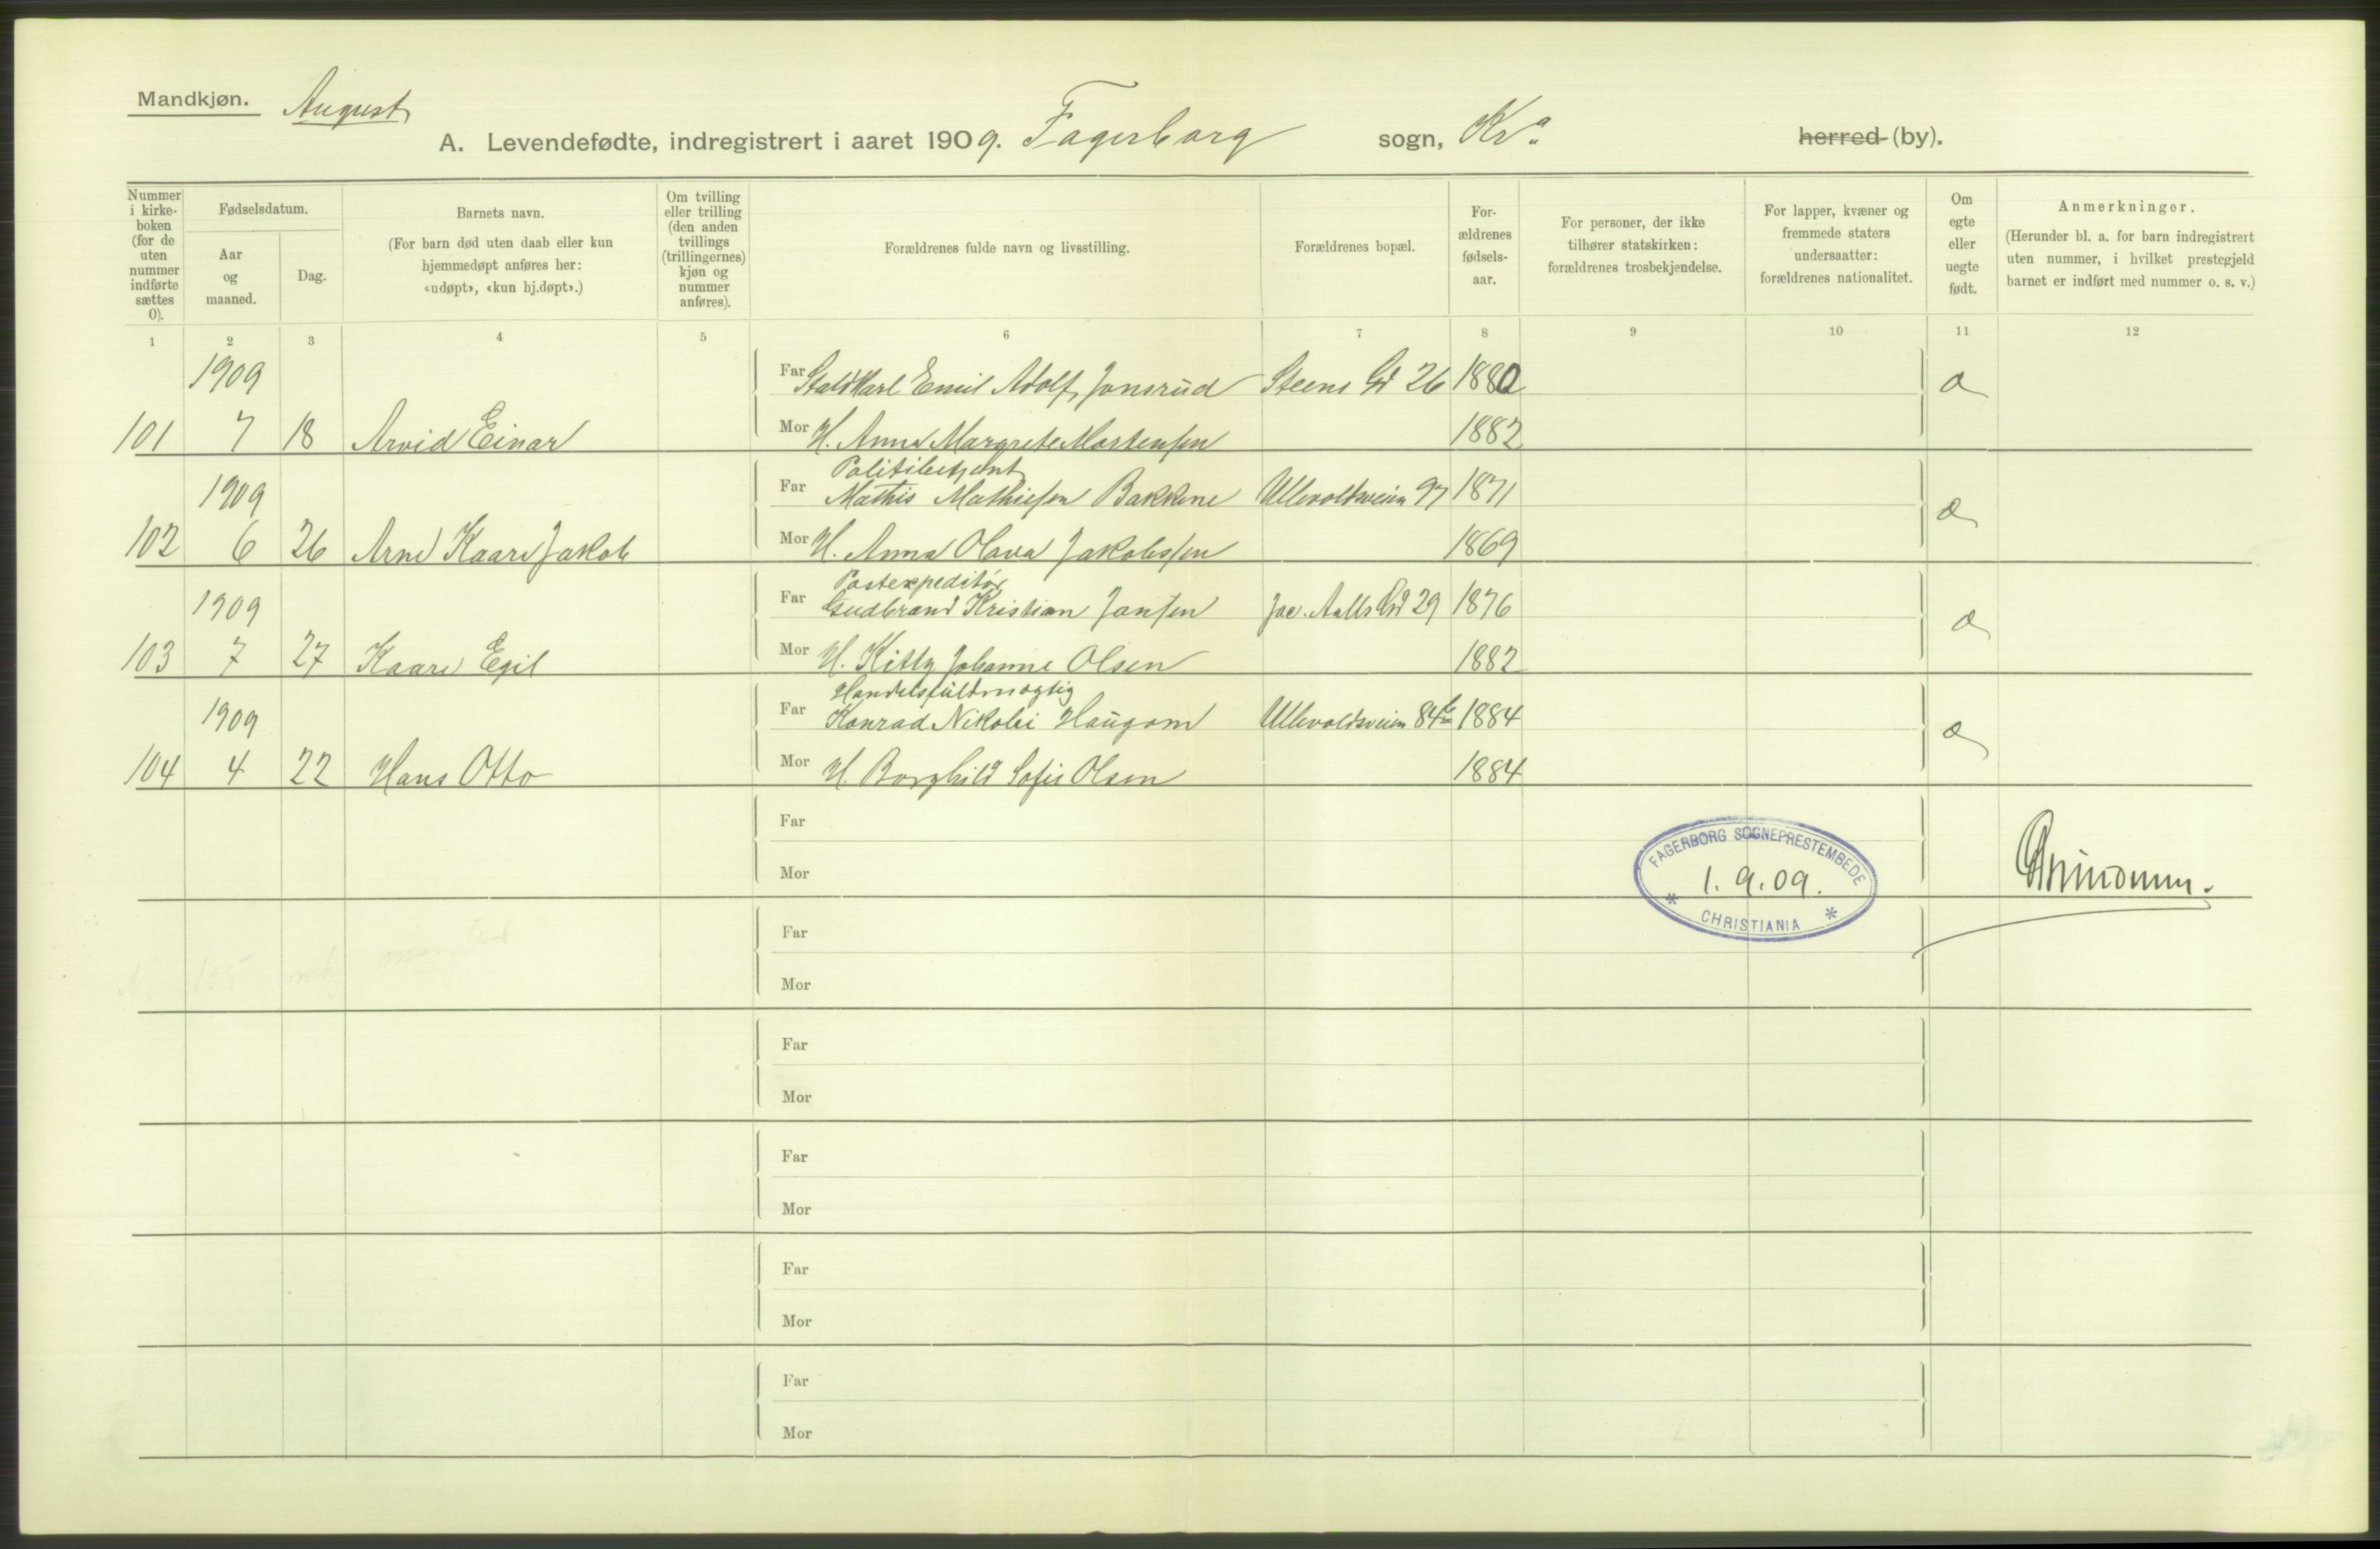 Mandkjøn. August
A. Levendefødte, indregistrert i aaret 1909. Fagerborg sogn, Kra herred (by).
Nummer i kirke- boken (for de uten nummer indførte sættes 0).
Fødselsdatum.
Aar og maaned.
Dag.
Barnets navn.
(For barn død uten daab eller kun hjemmedøpt anføres her: «udøpt», «kun hj.døpt».)
Om tvilling eller trilling (den anden tvillings (trillingernes) kjøn og nummer anføres).
Forældrenes fulde navn og livsstilling.
Forældrenes bopæl.
For- ældrenes fødsels- aar.
For personer, der ikke tilhører statskirken: forældrenes trosbekjendelse.
For lapper, kvæner og fremmede staters undersaatter: forældrenes nationalitet.
Om egte eller uegte født.
Anmerkninger.
(Herunder bl. a. for barn indregistrert uten nummer, i hvilket prestegjeld barnet er indført med nummer o. s. v.)
1 2 3 4 5 6 7 8 9 10 11 12
1909 Far Karl Emil Adolf Jonsrud Steens Gd 26 1880
101 7 18 Arvid Einar Mor H. Anna Margrete Mortensen 1882
Politibetjent
1909 Far Mathis Mathiesen Bakkene Ullevoldsveien 97 1871
102 6 26 Arne Kaare Jakob Mor H. Anna Olava Jakobssen 1869
Postexpeditør
1909 Far Gudbrand Kristian Jansen Jac. Aalls Gd 29 1876
103 7 27 Kaare Egil Mor H. Kitty Johanne Olsen 1882
Handelsfuldmægtig
1909 Far Konrad Nikolai Haugom Ullevoldsveien 84 1884
104 4 22 Hans Otto Mor H. Borghild Sofie Olsen 1884
Far
Mor
FAGERBORG SOGNEPRESTEMBEDE
1.9.09.
* CHRISTIANIA *
Far
Mor
Far
Mor
Far
Mor
Far
Mor
Far
Mor